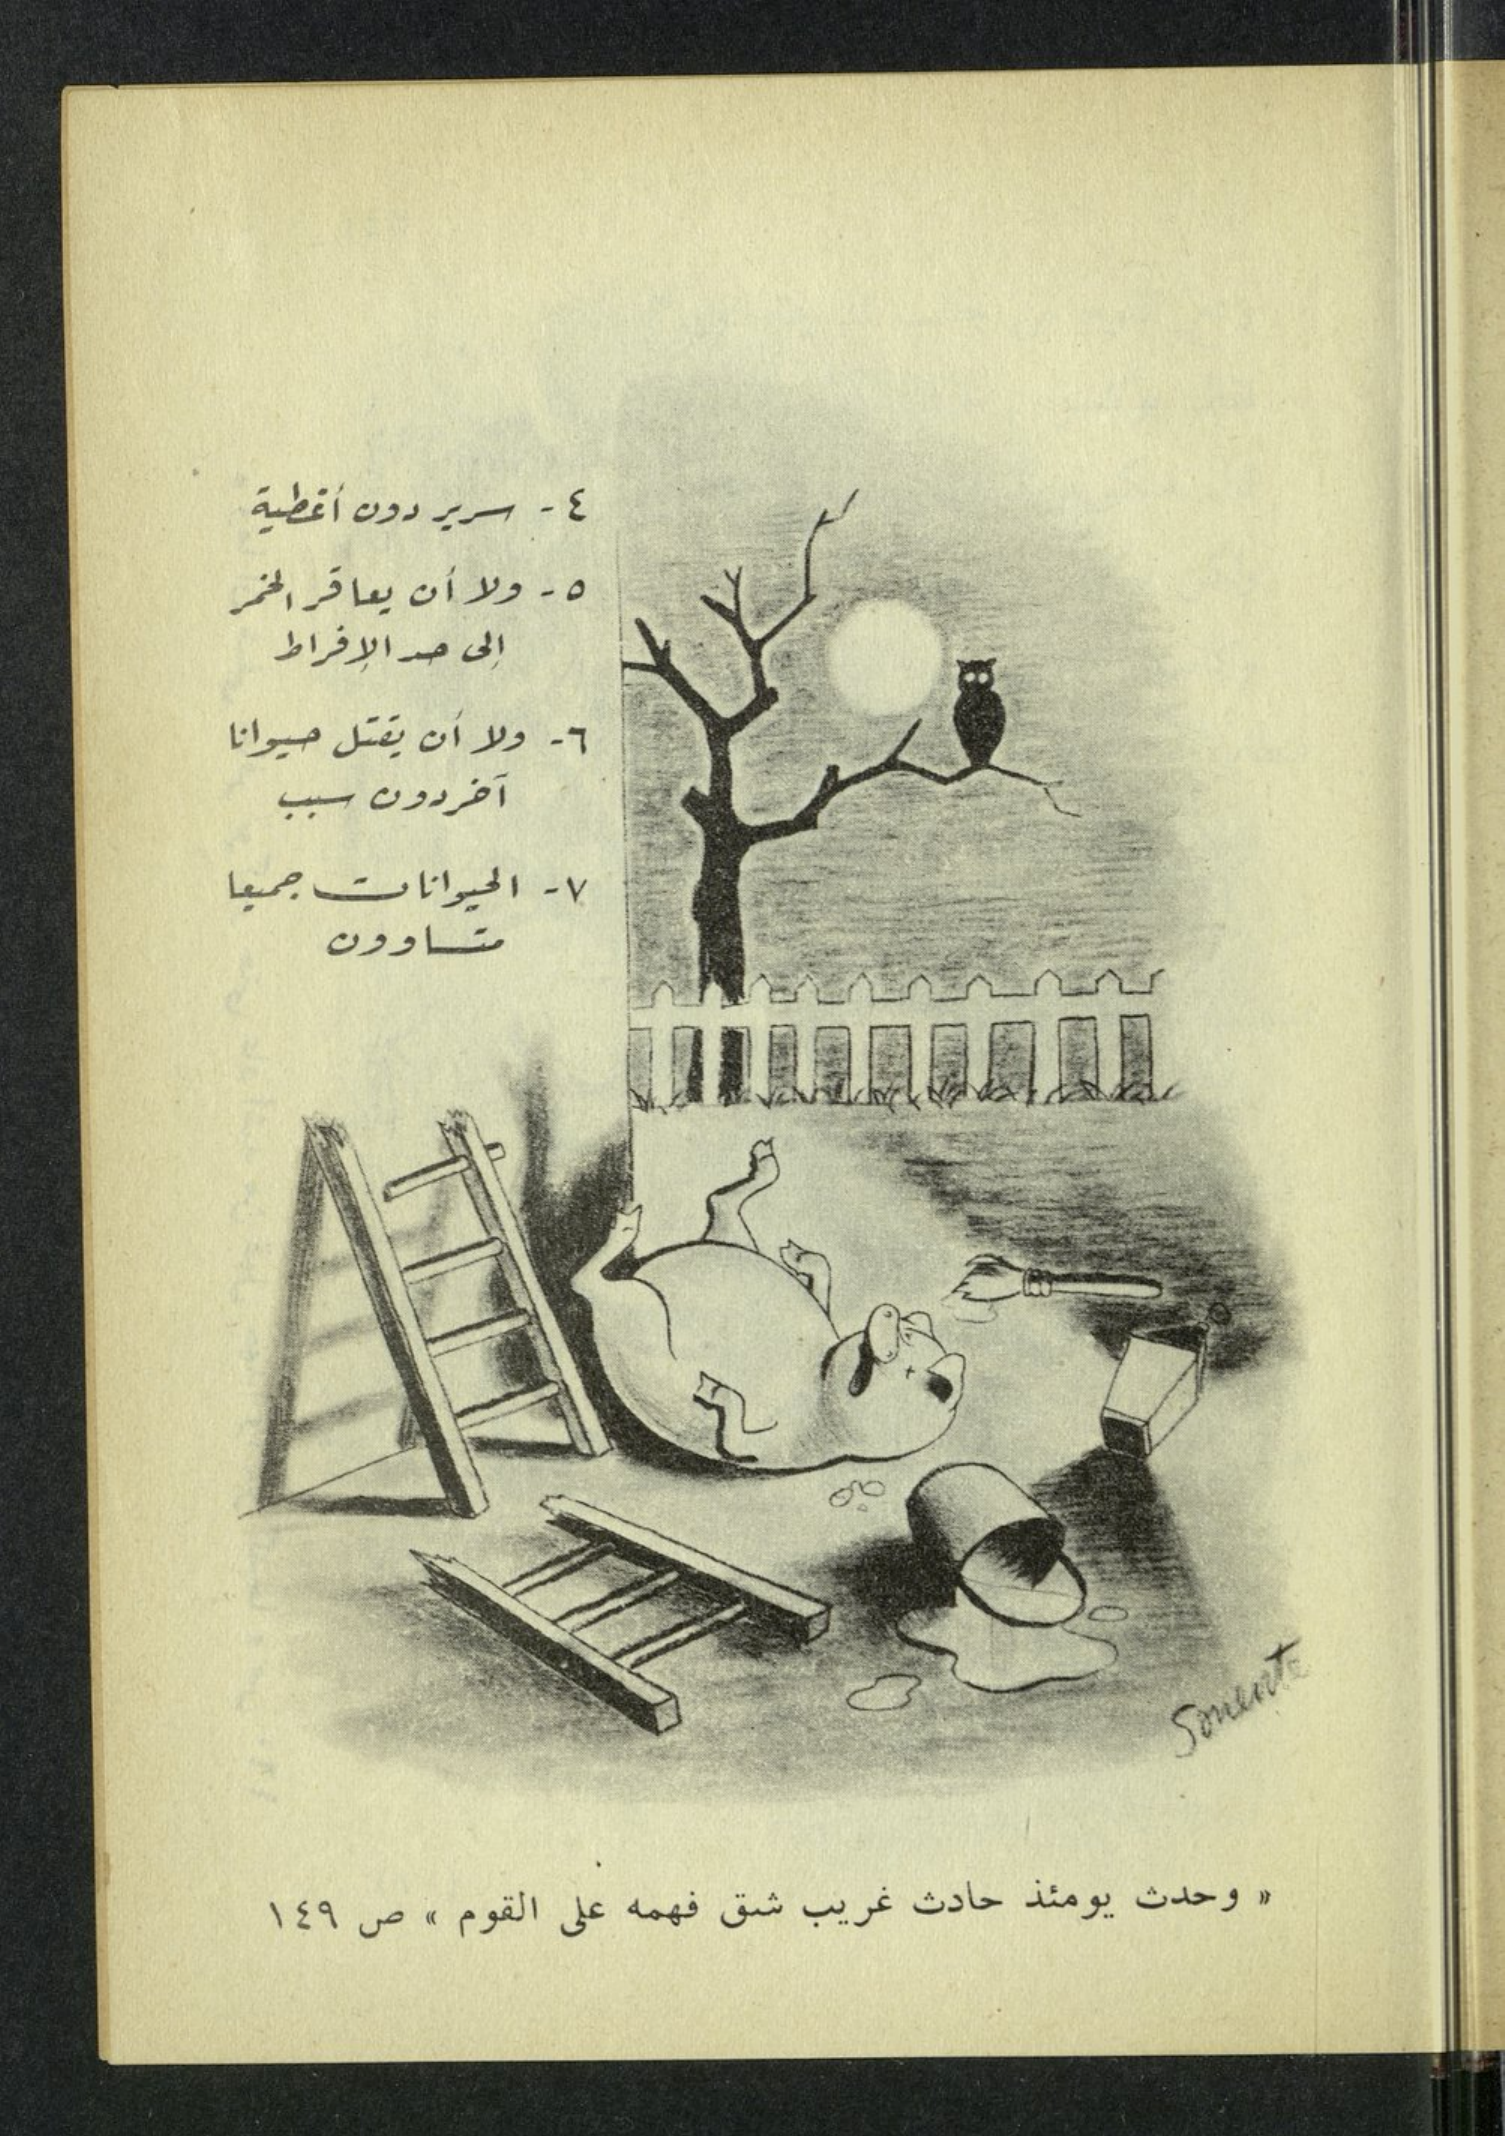 ٤- سرير دون أغطية
٥- ولا أن يعاقر الخمر
إلى حد الإفراط
٦- ولا أن يقتل حيوانا
آخر دون سبب
٧- الحيوانات جميعا
متساوون
« وحدث يومئذ حادث غريب شق فهمه على القوم » ص ١٤٩